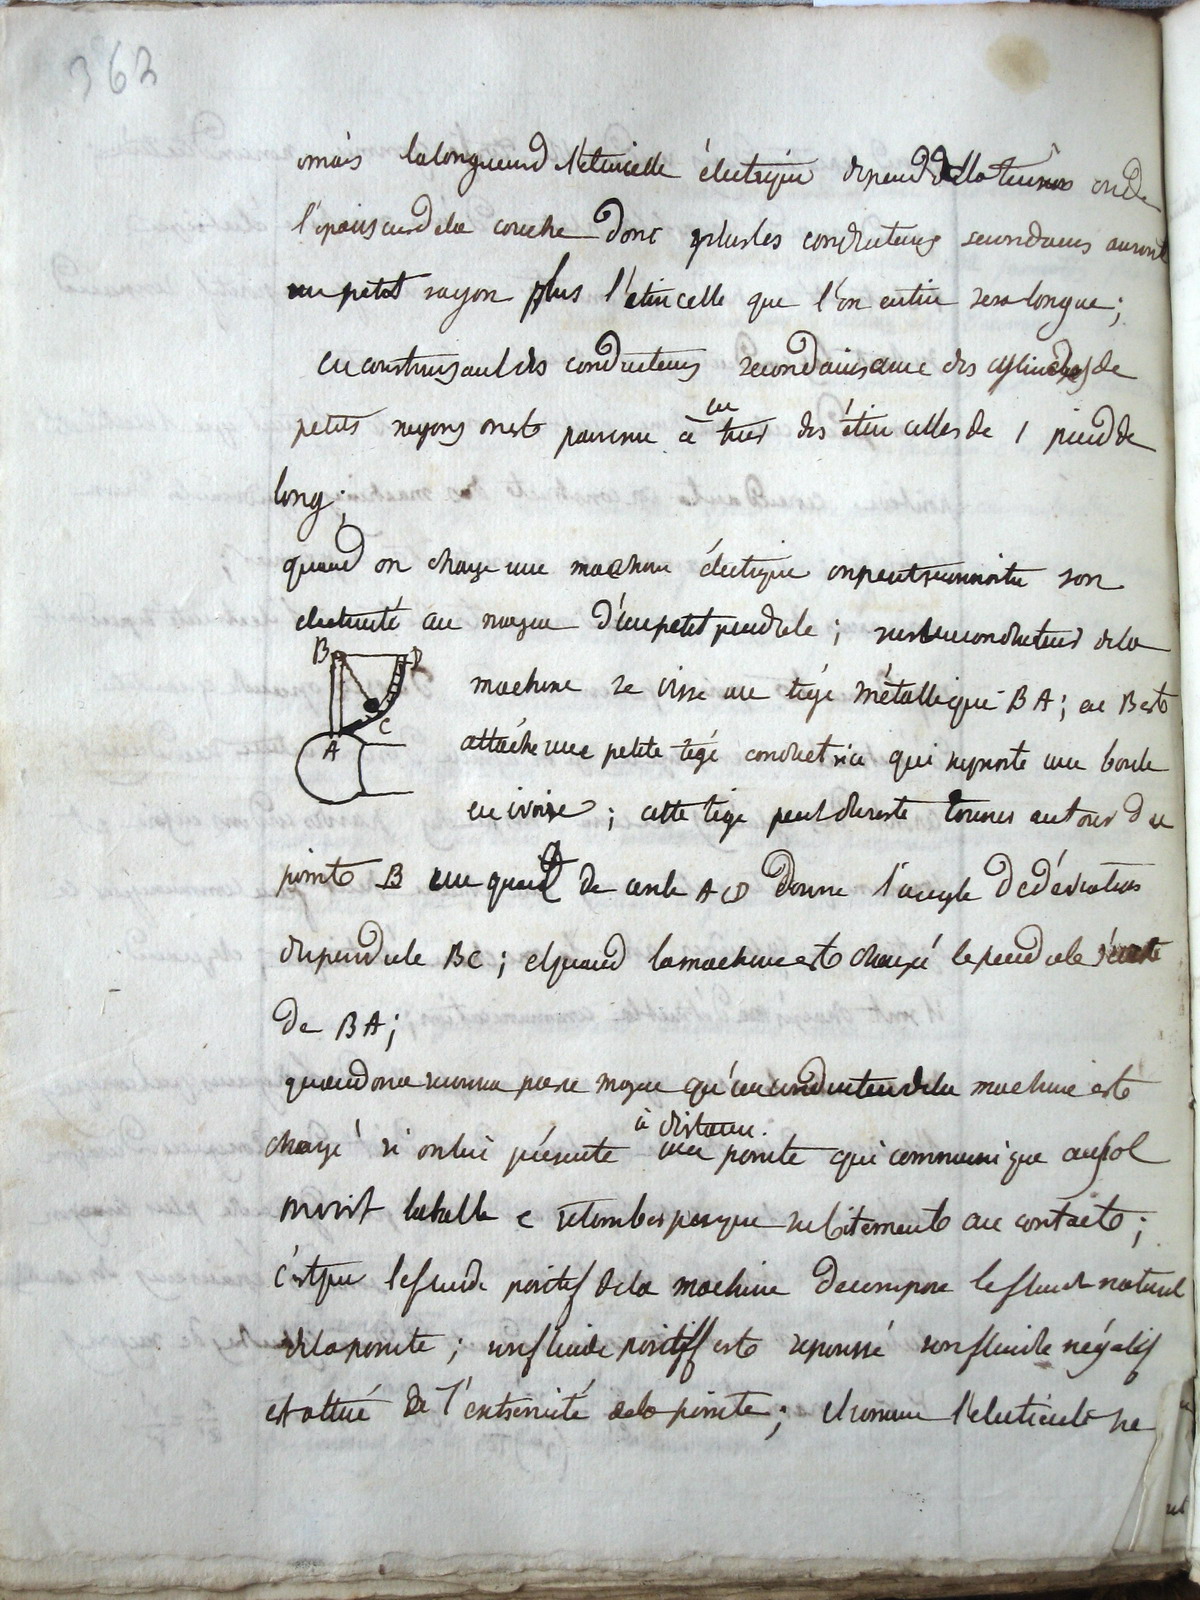 362
mais la longueur de l'étincelle électrique depend de la tension ou de
l'épaisseur de la couche donc plus les conducteurs secondaires auront
un petit rayon plus l'étincelle que l'on en tire sera longue;
en construisant des conducteurs secondaires avec des cylindres de
petits rayons on est parvenu à en tirer des étincelles de 1 pied de
long;
quand on charge une machine électrique on peut reconnoitre son
electricité au moyen d'un petit pendule; sur le conducteur de la
B D
machine se visse une tige métallique BA; en B est
C
A
attachée une petite tige conductrice qui supporte une boule
en ivoire; cette tige peut du reste tourner autour du
point B un quart de cercle ACD donne l'angle de déviation
du pendule BC; et quand la machine est chargé le pendule s'écarte
de BA;
quand on a reconnu par ce moyen qu'un conducteur de la machine est
chargé si on lui présente à distance une pointe qui communique au sol
on voit la balle C retomber presque subitement au contact;
c'est que le fluide positif de la machine decompose le fluide naturel
de la pointe; son fluide positif est repoussé son fluide négatif
est attiré de l'extremité de la pointe; et comme l'électricité ne